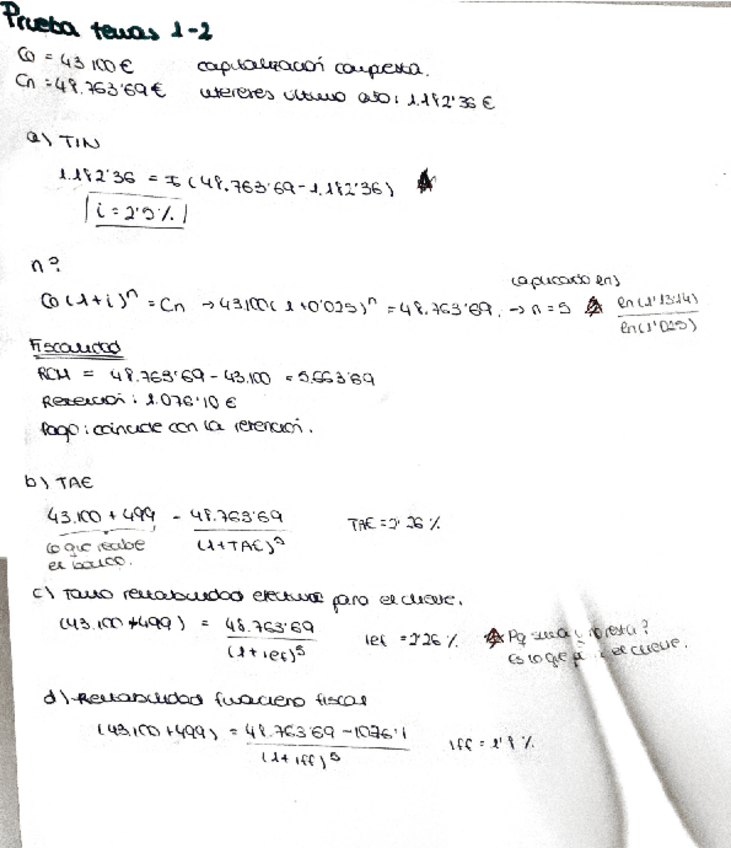 Prueba temas 1-2
Co = 43.100 € capitalización compuesta.
Cn = 48.763'69 € intereses último año: 1.182'36 €
a) TIN
1.182'36 = i (48.763'69 - 1.182'36)
i = 2'5 %
n?
(aplicando ln)
Co (1+i)^n = Cn → 43.100 (1+0'025)^n = 48.763'69. → n = 5 ln(1'1314) / ln(1'025)
Fiscalidad
RCM = 48.763'69 - 43.100 = 5.663'69
Retención: 1.076'10 €
Pago: coincide con la retención.
b) TAE
43.100 + 499 - 48.763'69 / (1+TAE)^5 TAE = 2'26 %
lo que recibe
el banco.
c) Tanto rentabilidad efectiva para el cliente.
(43.100 + 499) = 48.763'69 / (1+ief)^5 ief = 2'26 % Pq suma y no resta?
Es lo que el cliente.
d) Rentabilidad financiero fiscal
(43.100 + 499) = 48.763'69 - 1076'1 / (1+iff)^5 iff = 1'8 %